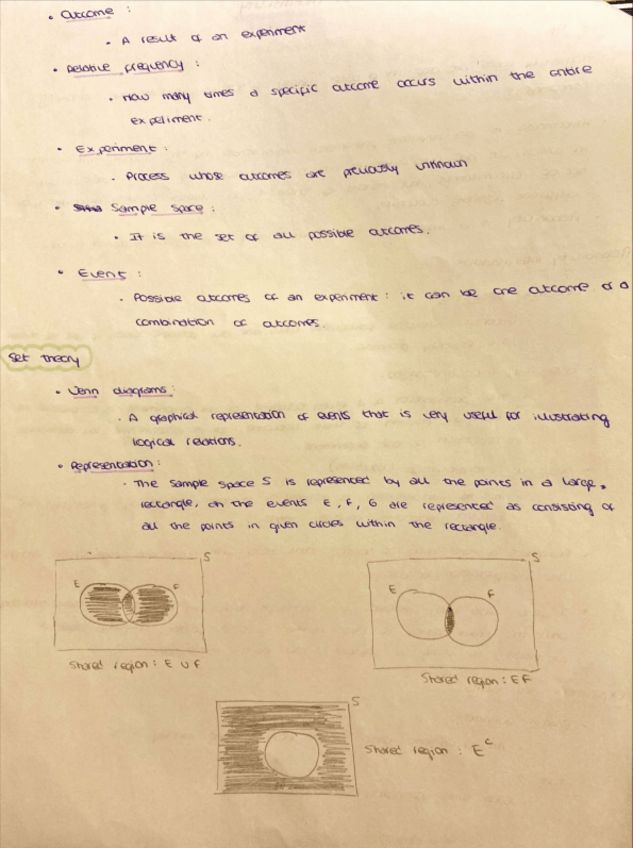 • Outcome :
• A result of an experiment
• Relative frequency :
• How many times a specific outcome occurs within the entire
experiment.
• Experiment :
• Process whose outcomes are previously unknown
• Sample space :
• It is the set of all possible outcomes.
• Event :
• Possible outcomes of an experiment : it can be one outcome or a
combination of outcomes.
Set theory
• Venn diagrams :
• A graphical representation of events that is very useful for illustrating
logical relations.
• Representation :
• The sample space S is represented by all the points in a large
rectangle, on the events E, F, G are represented as consisting of
all the points in given circles within the rectangle.
S
E F
Shared region : E ∪ F
S
E F
Shared region : EF
S
Shared region : E^c